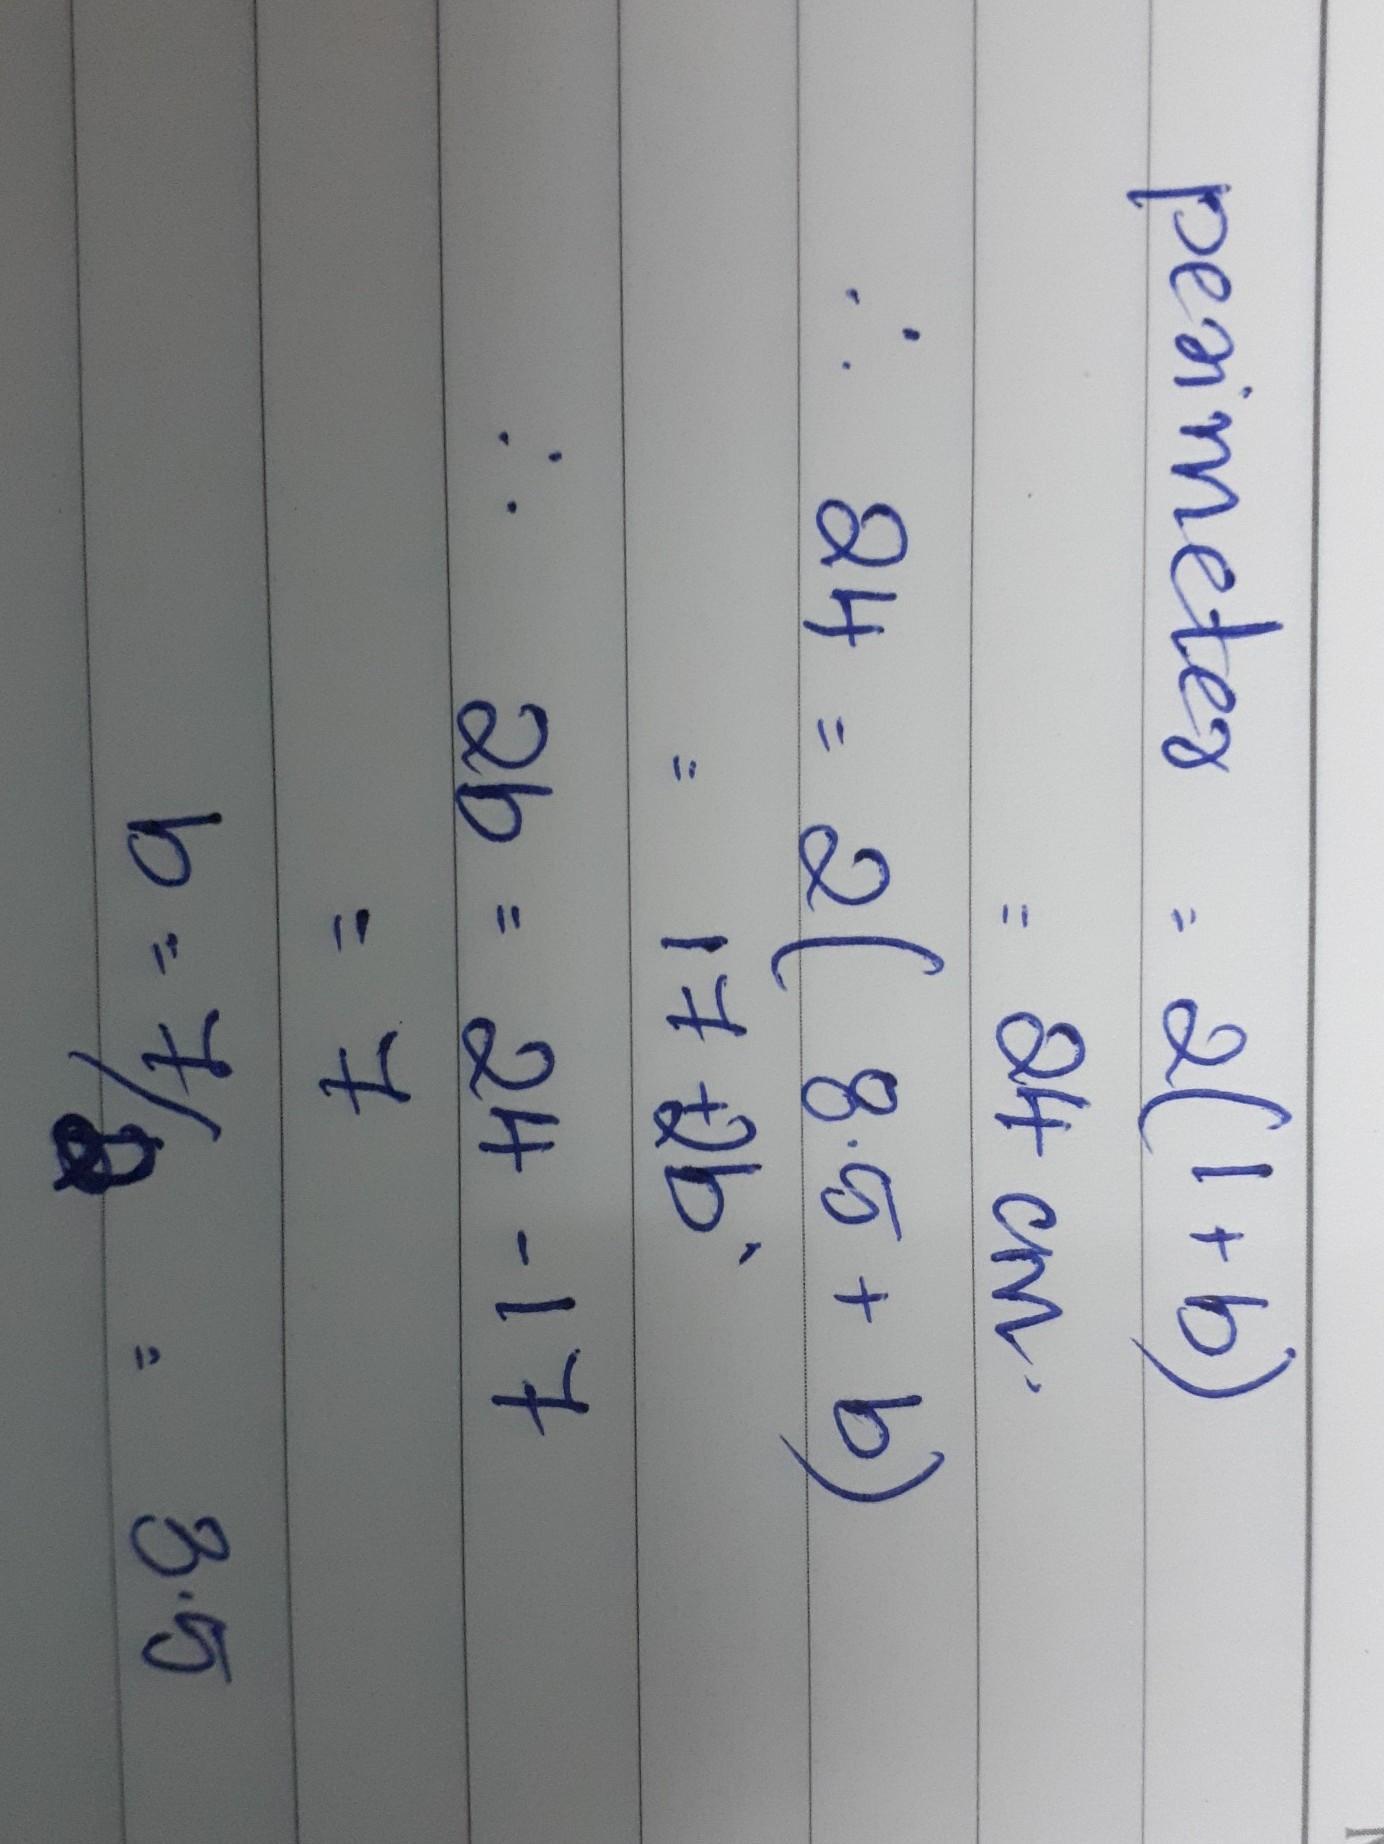 perimeter = 2(l + b)
= 24 cm.
∴ 24 = 2( 8.5 + b)
= 17 + 2b
∴ 2b = 24 - 17
= 7
b = 7/2 = 3.5